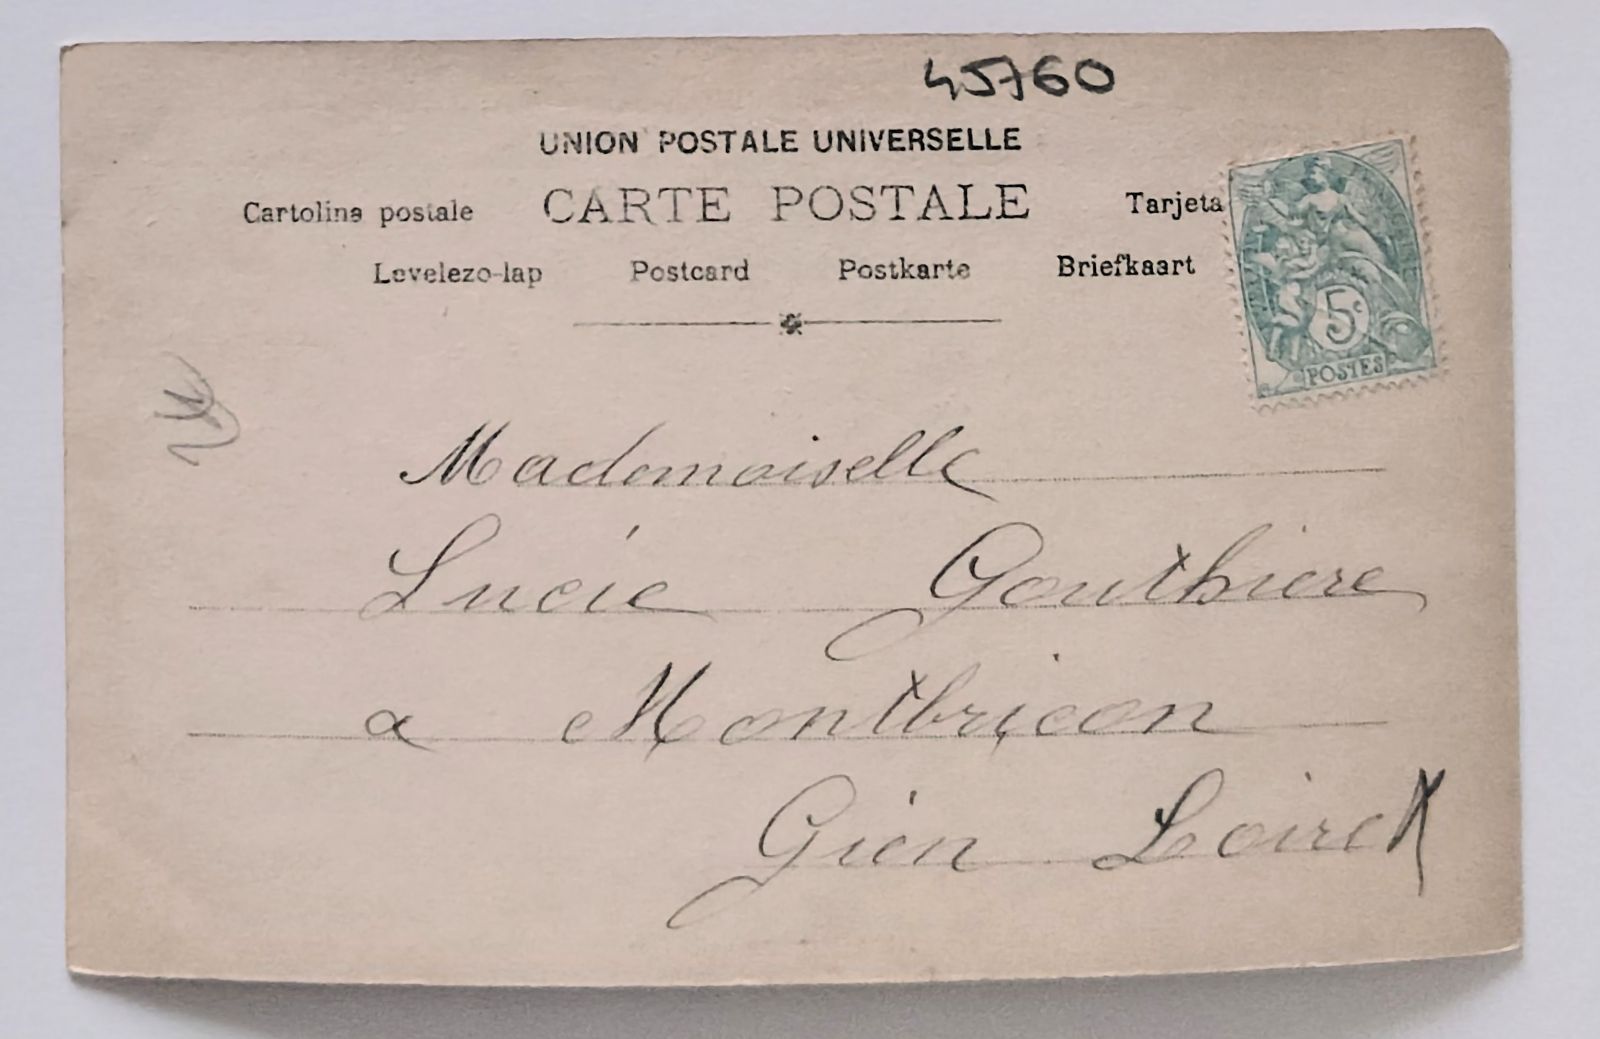 45760
UNION POSTALE UNIVERSELLE
Cartolina postale CARTE POSTALE Tarjeta
Levelezo-lap Postcard Postkarte Briefkaart
5c
POSTES
Mademoiselle
Lucie Gouthiere
a Montbricon
Gien Loiret